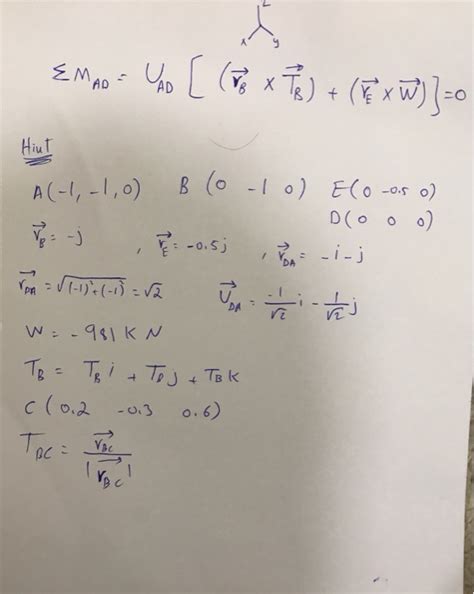 z
x y
ΣM_AD = U_AD [ (r⃗_B × T⃗_B) + (r⃗_E × W⃗)] = 0
Hint
A(-1, -1, 0) B (0 -1 0) E(0 -0.5 0)
D(0 0 0)
r⃗_B = -j , r⃗_E = -0.5j , r⃗_DA = -i - j
r⃗_DA = √((-1)²+(-1)²) = √2 U⃗_DA = -1/√2 i - 1/√2 j
W = -981 K N
T_B = T_B i + T_B j + T_B K
C (0.2 -0.3 0.6)
T_BC = r⃗_BC / |r⃗_BC|